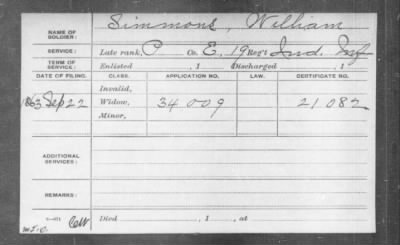 NAME OF SOLDIER: Simmons, William
SERVICE: Late rank, P Co. E, 19 Reg't Ind. Inf
TERM OF SERVICE: Enlisted , 1 Discharged , 1
DATE OF FILING. CLASS. APPLICATION NO. LAW. CERTIFICATE NO.
1863 Sep 22 Invalid,
Widow, 34 009 21 082
Minor,
ADDITIONAL SERVICES:
REMARKS:
Died , 1 , at